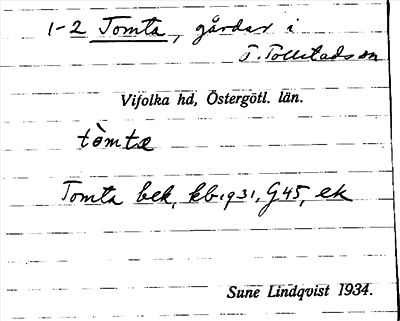 1-2 Tomta, gårdar i
T. Tollstads sn
Vifolka hd, Östergötl. län.
tòmtæ
Tomta bek, kb 1931, G45, ek
Sune Lindqvist 1934.